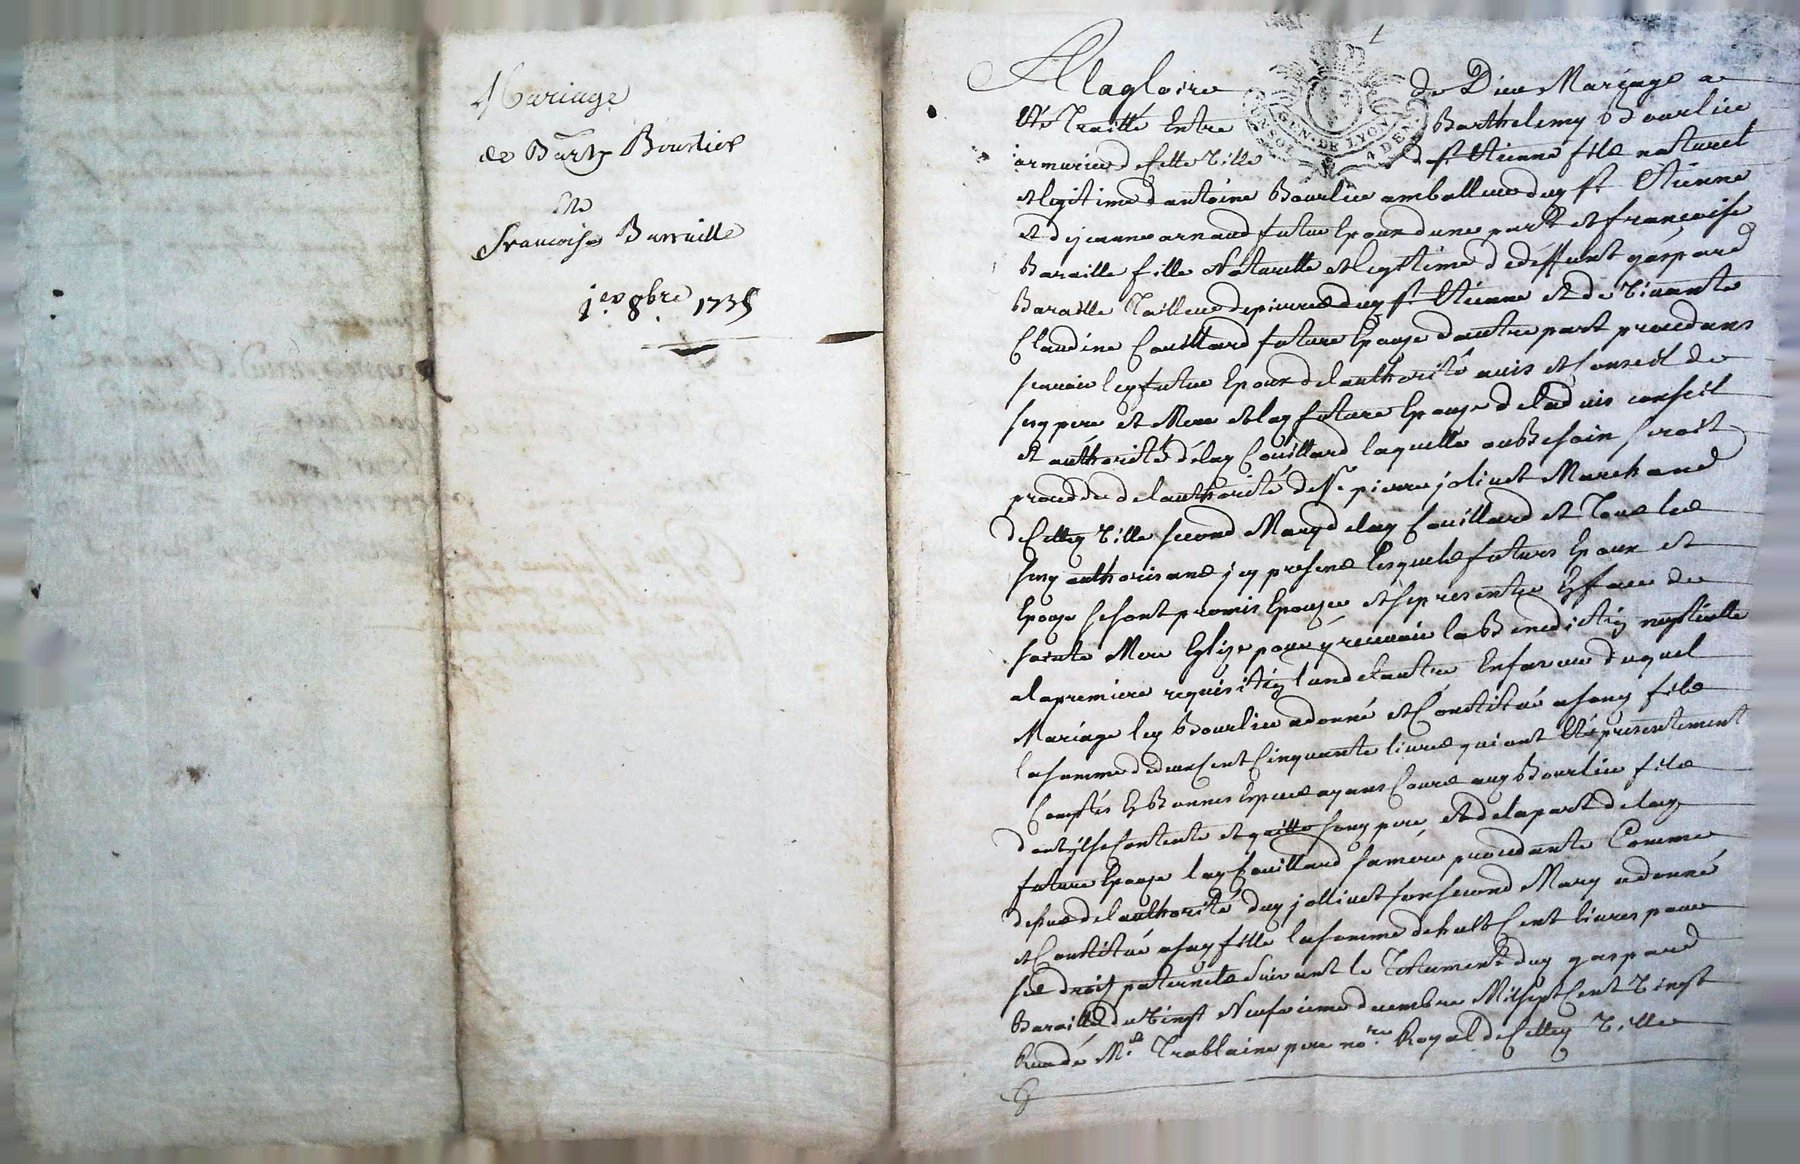 Mariage
de Barty Bourlier
Et
Francoise Barraille
1er 8bre 1735
GEN. DE LYON
4 DEN
A la gloire de Dieu Mariage a
Eté Traitté Entre Barthelemy Bourlier
armurier de cette Ville de st Etienne fils naturel
et legitime d'antoine Bourlier amballeur dud st Etienne
et de jeanne arnaud futur Epoux d'une part et françoise
Baraille fille Naturelle et legitime de deffunt gaspard
Baraille Tailleur de pierres dud st Etienne et de Vivante
Claudine Couillard future Epouze d'autre part procedans
scavoir led futur Epoux de l'authorité avis et Conseil de
sesd pere et Mere et lad future Epouze de l'advis conseil
et authorité de lad Couillard laquelle au Besoin seroit
procedée de l'authorité de Sr pierre jolivet Marchand
de Cetted Ville second Mary de lad Couillard et Tous les
susd authorisans icy presens lesquels futurs Epoux et
Epouze se sont promis Epouzer et se presenter En face de
sainte Mere Eglize pour y recevoir la Benediction nuptialle
a la premiere requisition l'un de l'autre En faveur duquel
Mariage led Bourlier a donné et Constitué a sond fils
la somme de deux Cent Cinquante livres qui ont Eté presentement
Comptés En Bonnes Especes ayans Cours aud Bourlier fils
dont il se Contente et quitte sond pere et de la part de lad
future Epouze lad Couillard sa mere procedante Comme
dessus de l'authorité dud jollivet son second Mary a donné
et Constitué a sad fille la somme de huit Cent livres pour
ses droits paternels suivant le Testament dud gaspard
Baraille du Vingt Neufvieme decembre Mil sept Cent Vingt
Receu de Me Trablaine pere nore Royal de Cetted Ville